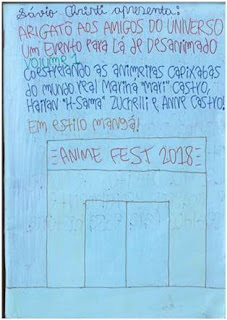 Sávio Christi apresenta:
ARIGATÔ AOS AMIGOS DO UNIVERSO
UM EVENTO PARA LÁ DE DESANIMADO
VOLUME 1
COESTRELANDO AS ANIMEIRAS CAPIXABAS
DO MUNDO REAL MARINA "MARI" CASTRO,
HAITAN "H-SAMA" ZUCHELLI E ANNE CASTRO!
EM ESTILO MANGÁ!
ANIME FEST 2018